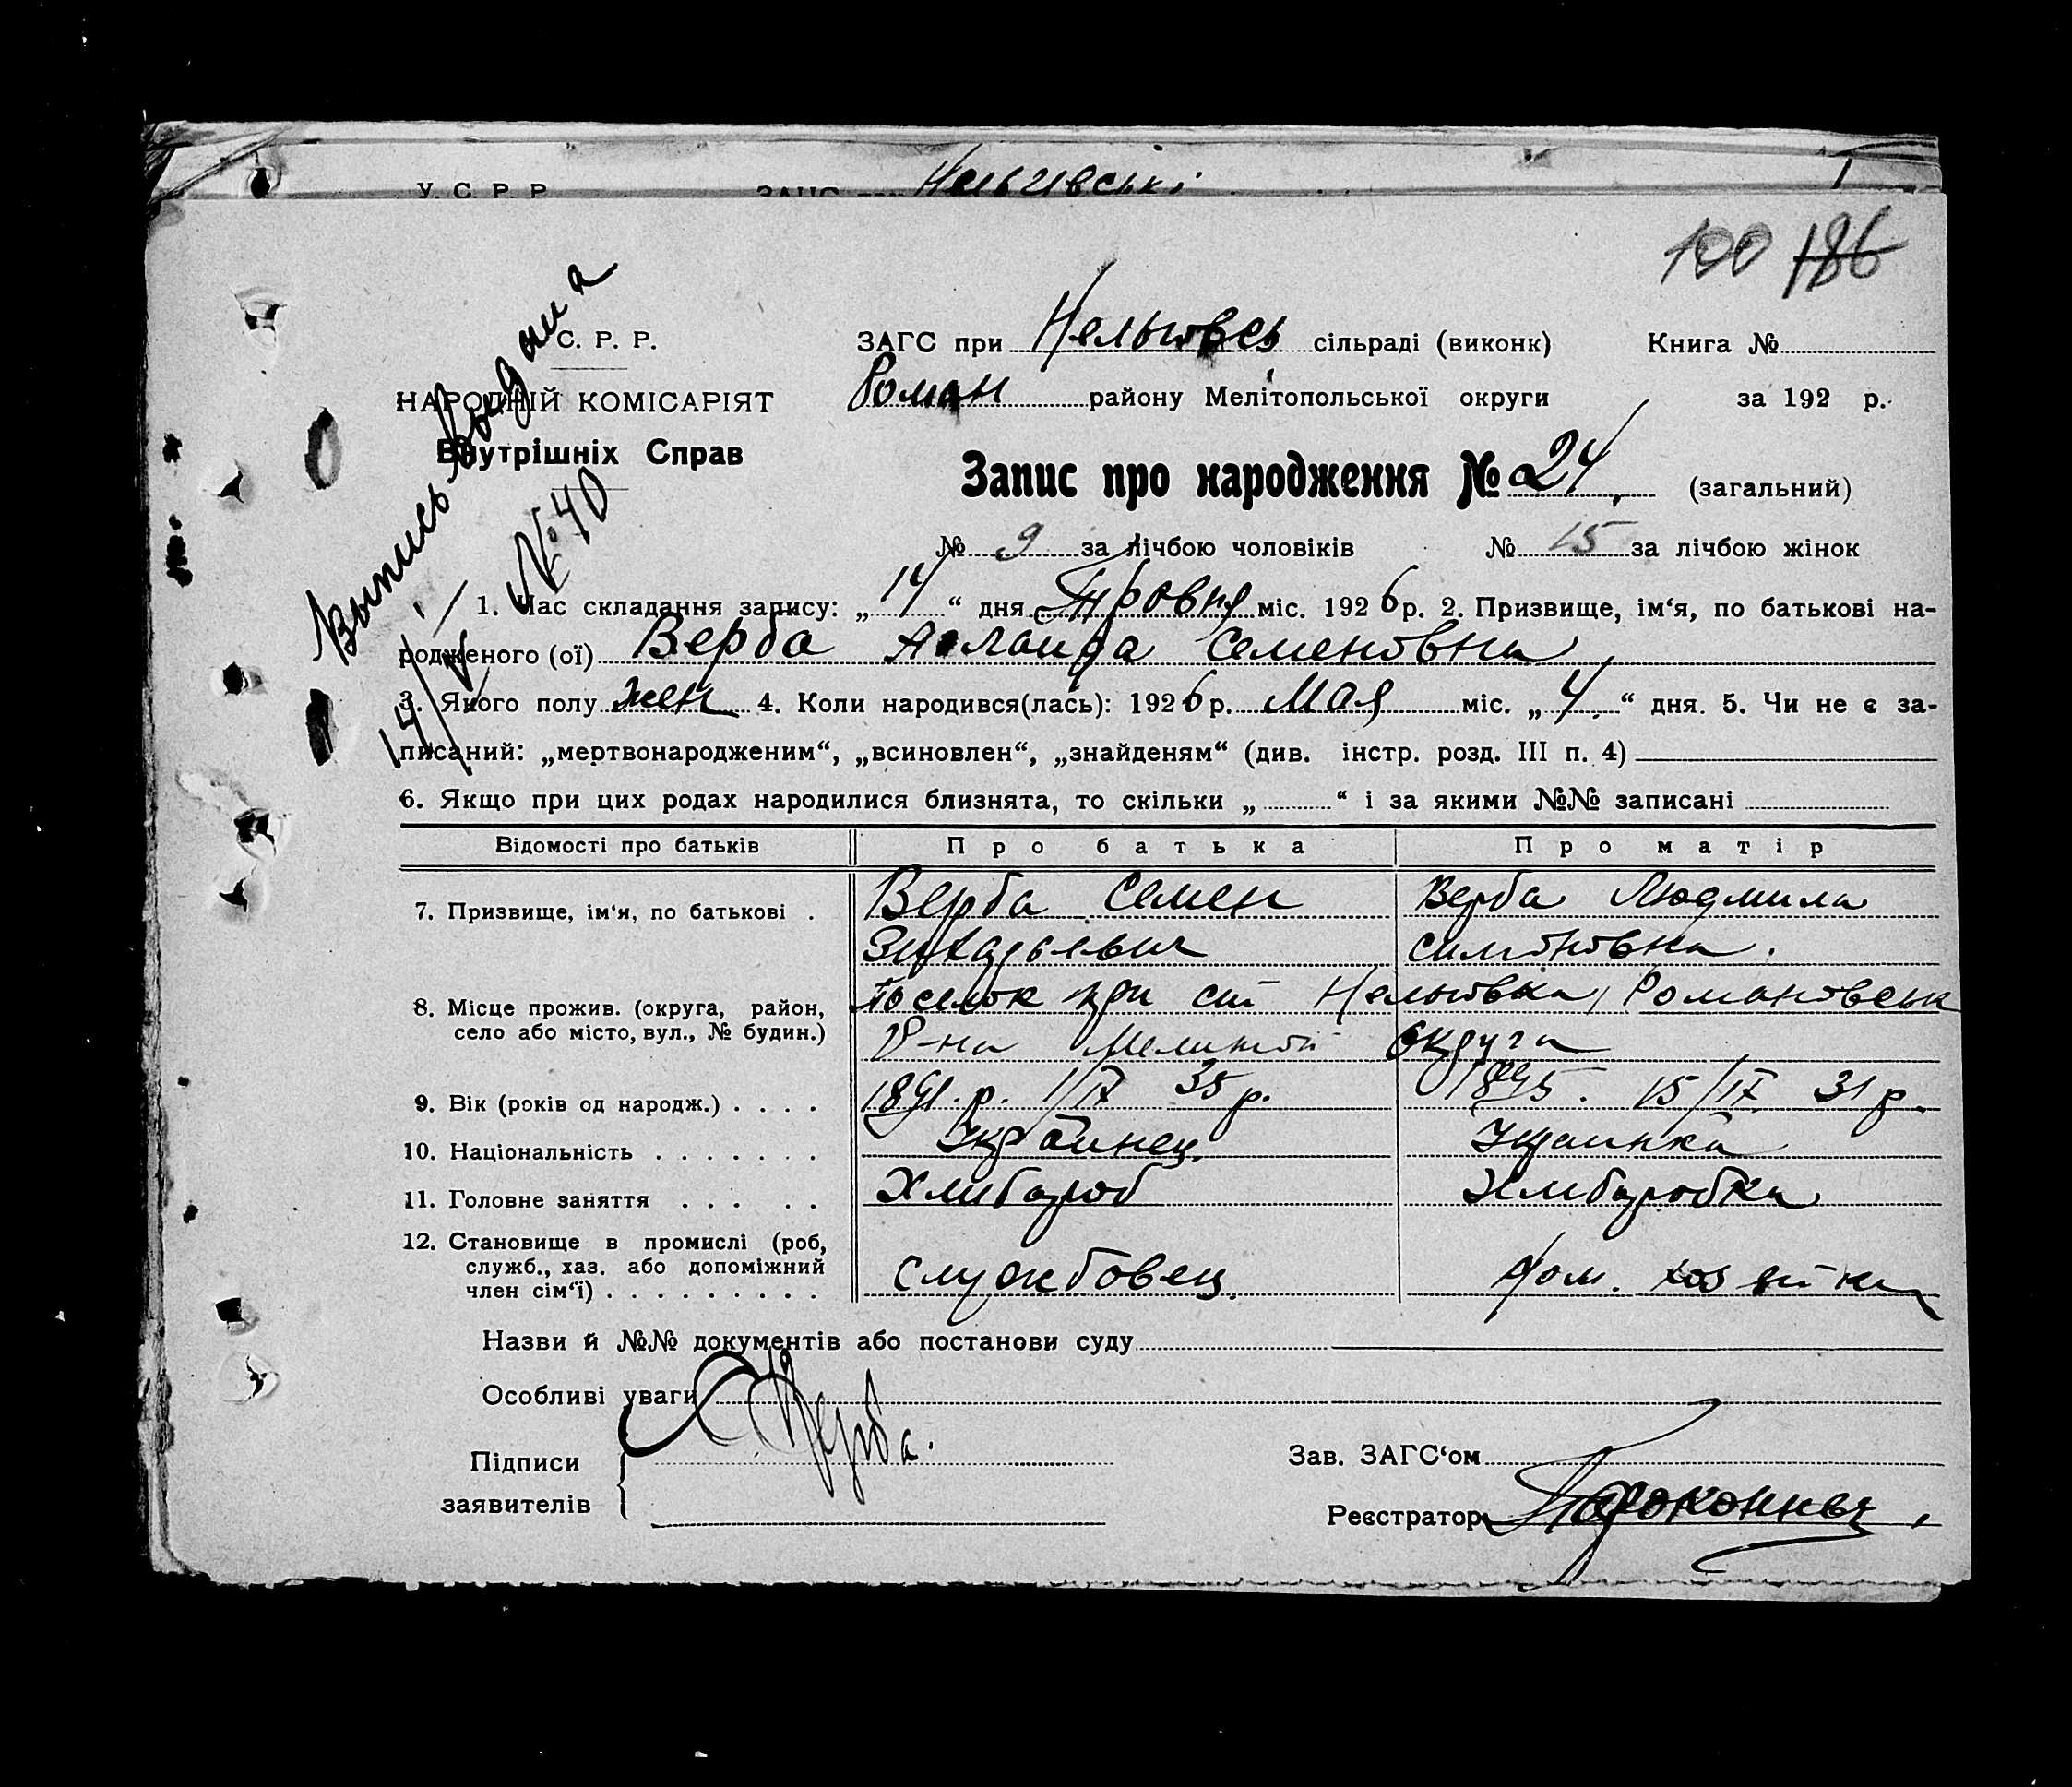 У. С. Р. Р.
100 186
С. Р. Р.
НАРОДНІЙ КОМІСАРІЯТ
Внутрішніх Справ
Выпись выдана
№ 40
ЗАГС при Нельговсь сільраді (виконк) Книга №
Роман району Мелітопольської округи за 192 р.
Запис про народження № 24 (загальний)
№ 9 за лічбою чоловіків № 15 за лічбою жінок
1. Час складання запису: „14“ дня Тровня міс. 1926 р. 2. Призвище, ім‘я, по батькові на-
родженого (ої) Верба Семеновна
3. Якого полу жен 4. Коли народився(лась): 1926 р. Мая міс. „4.“ дня. 5. Чи не є за-
писаний: „мертвонародженим“, „всиновлен“, „знайденям“ (див. інстр. розд. III п. 4)
6. Якщо при цих родах народилися близнята, то скільки „ “ і за якими №№ записані
Відомості про батьків Про батька Про матір
7. Призвище, ім‘я, по батькові . Верба Семен Верба Людмила
Симоновна.
8. Місце прожив. (округа, район, Поселок при ст Нельговка, Романовськ
село або місто, вул., № будин.) Р-на Мелитой Округа
9. Вік (років од народж.) . . . . 1891.р. 1/IX 35 р. 1895. 15/IX 31 р.
10. Національність . . . . . . . Украинец. Украинка
11. Головне заняття . . . . . Хлибароб Хлибаробка
12. Становище в промислі (роб, служб., хаз. або допоміжний член сім‘ї) . . . . . . . . . службовец. дом. хозяйка
Назви й №№ документів або постанови суду
Особливі уваги
Підписи
заявителів
Верба.
Зав. ЗАГС‘ом
Реєстратор